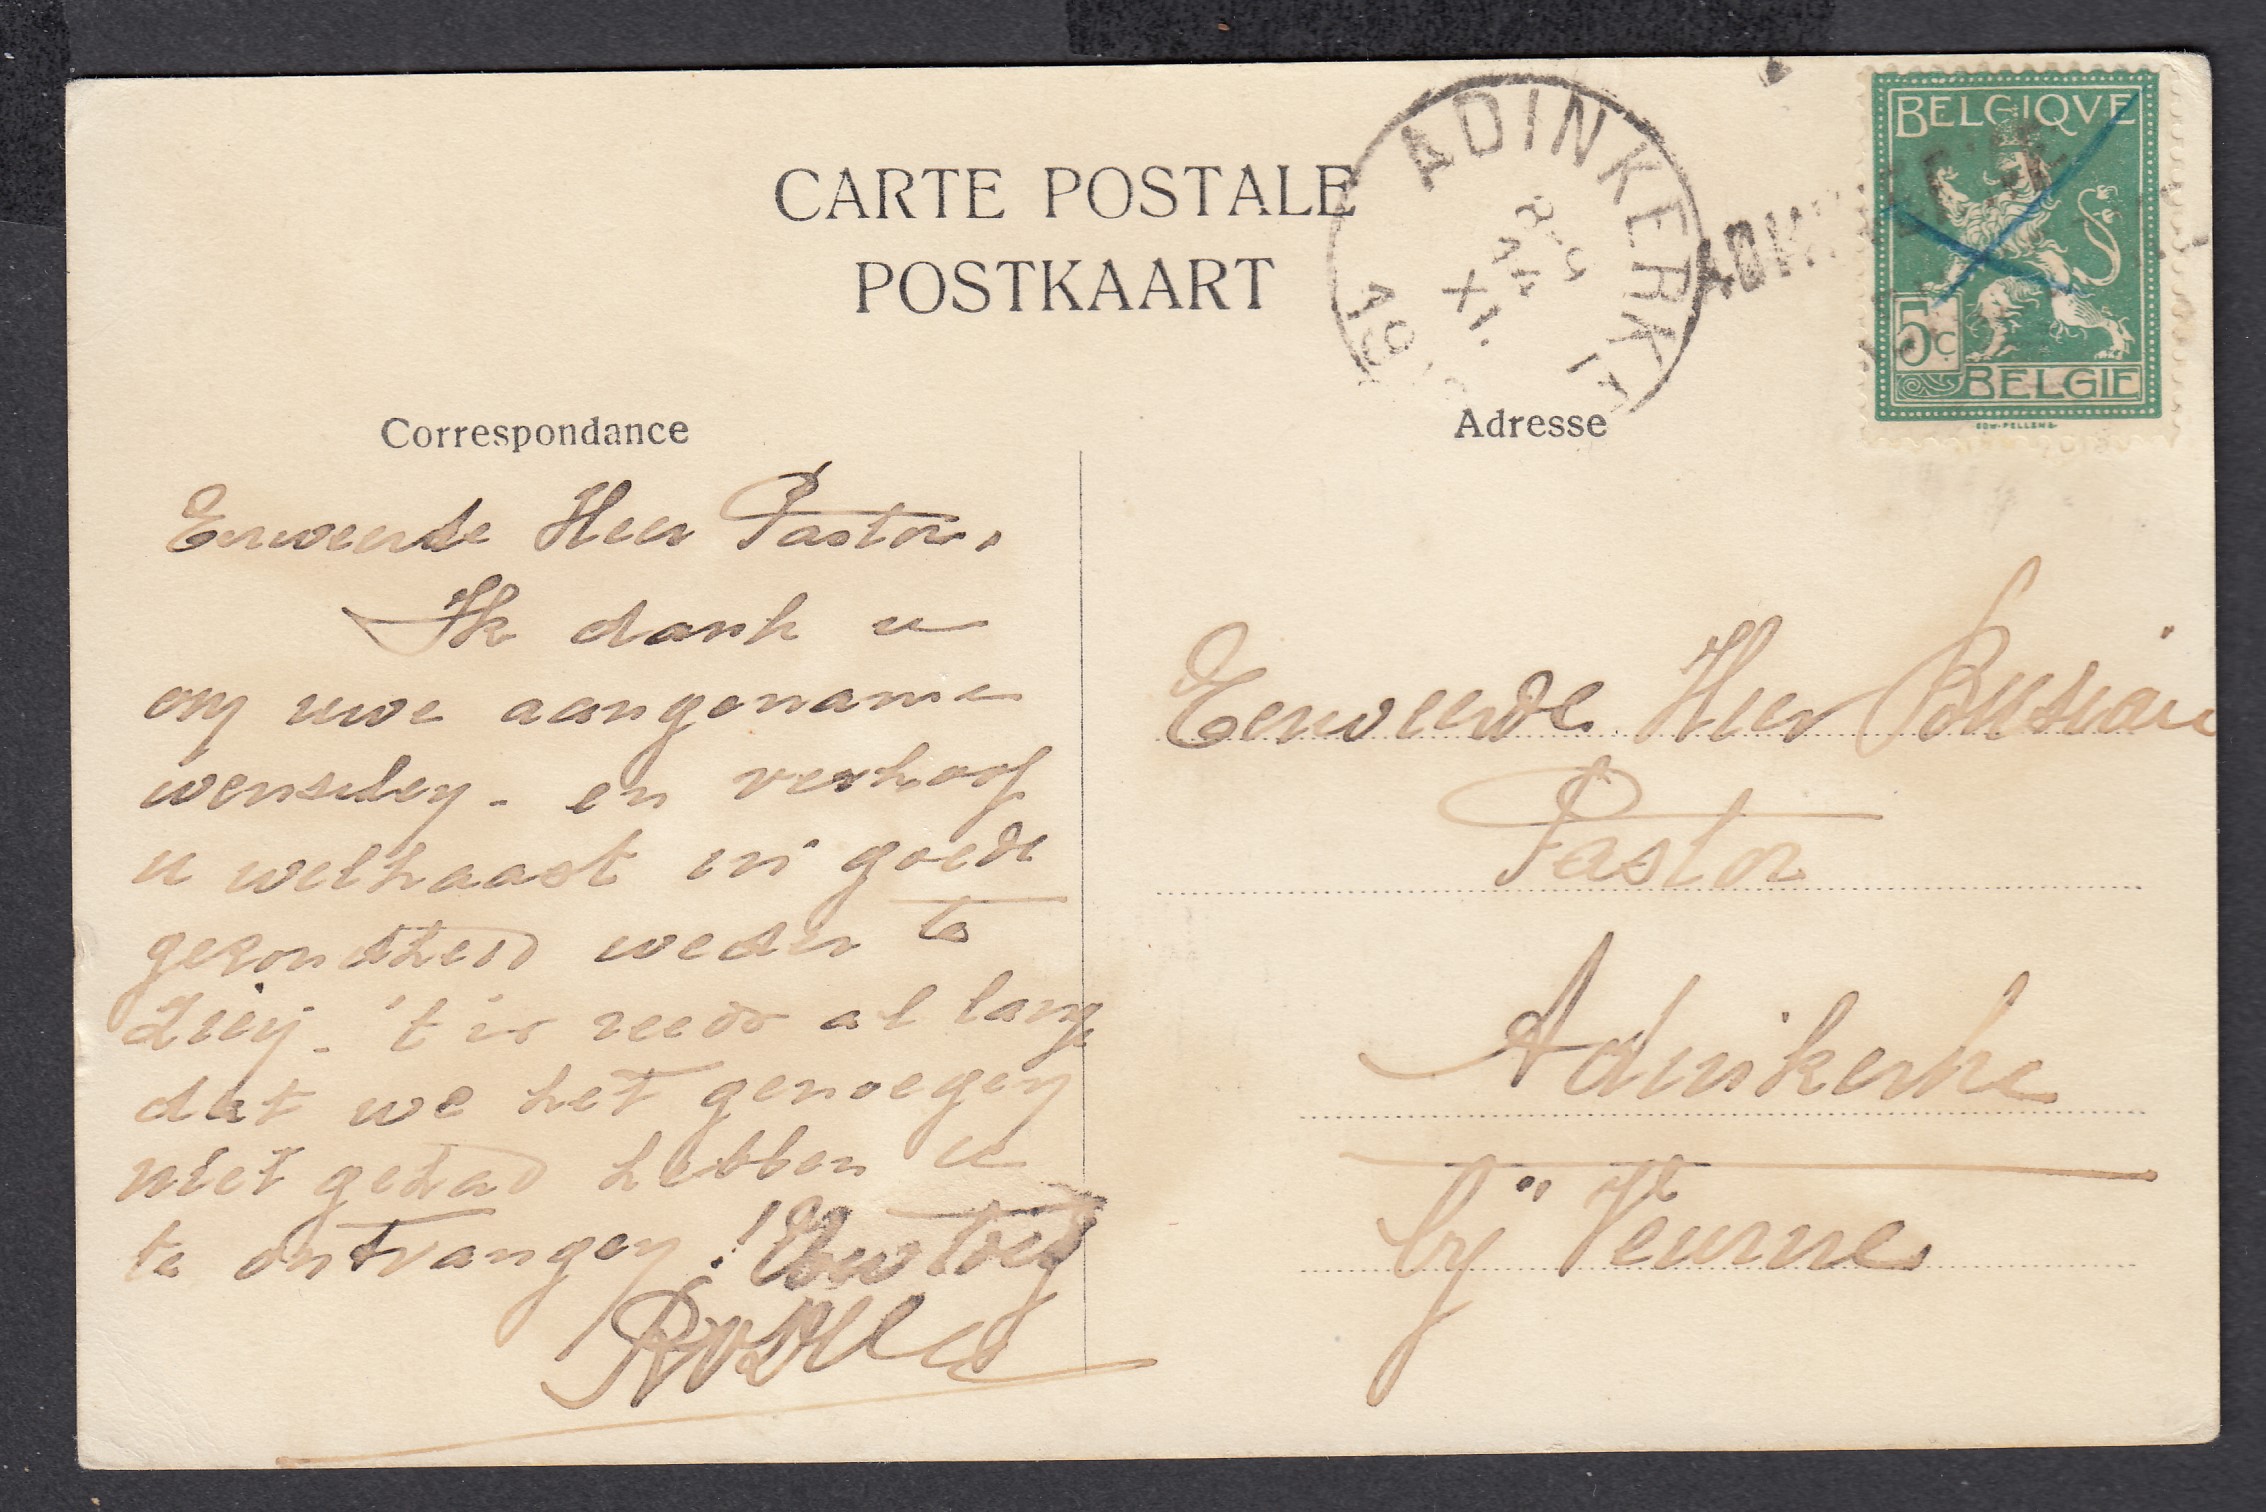 CARTE POSTALE
POSTKAART
ADINKERKE
8-9
14
XI
BELGIQVE
5c
BELGIE
Correspondance
Adresse
Eerweerde Heer Pastor,
Ik dank u
om uwe aangename
wenschen - en verhoop
u welhaast in goede
gezondheid weder te
zien - 't is reeds al lang
dat we het genoegen
niet gehad hebben u
te ontvangen!
Eerweerde Heer
Pastor
Adinkerke
bij Veurne